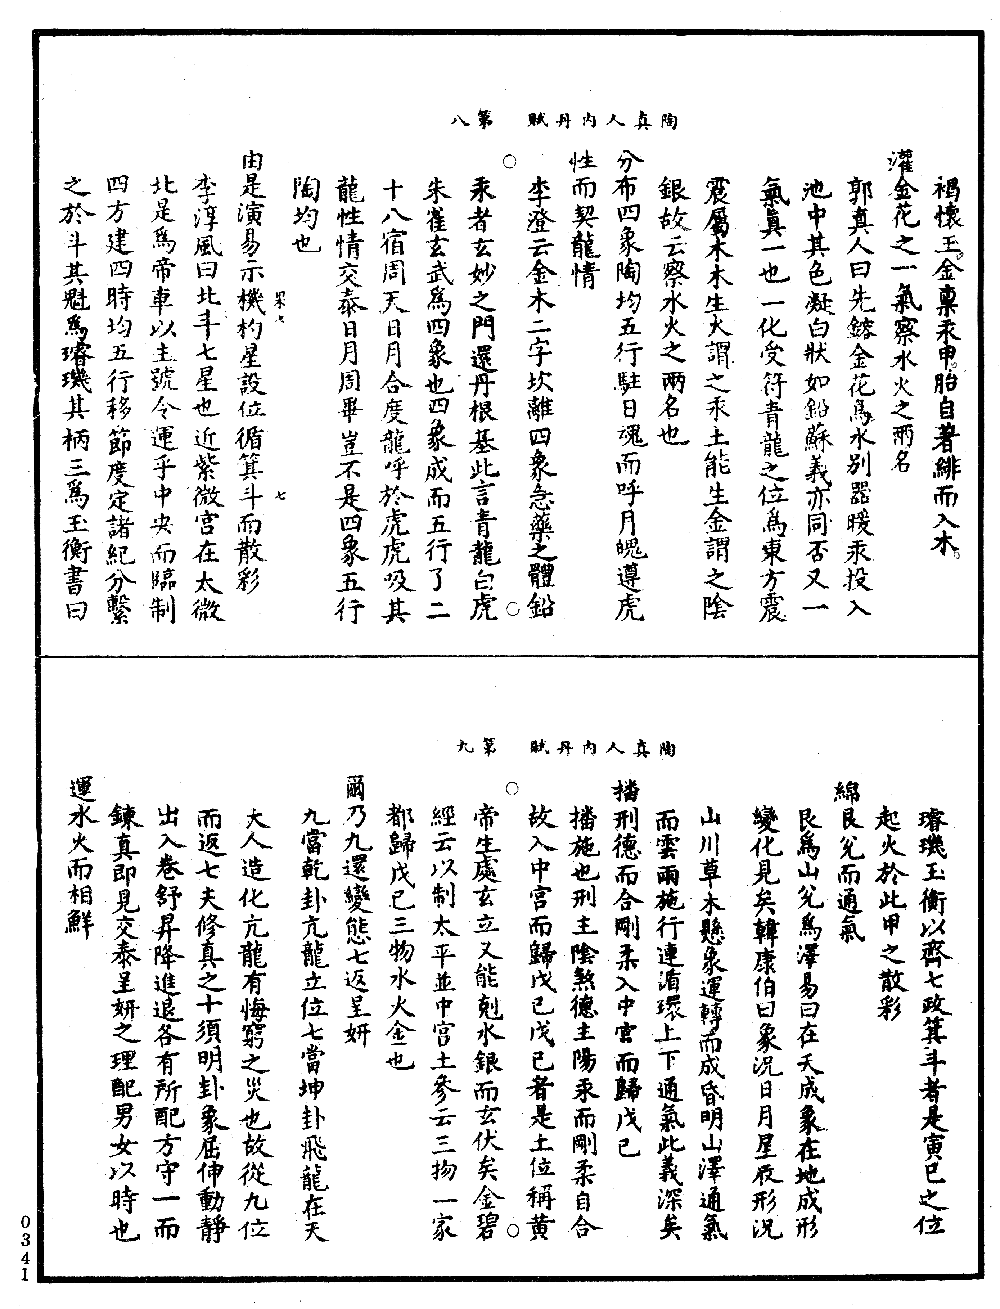 陶真人内丹賦　第八
褐懷玉金稟汞甲胎自著緋而入木
灌金花之一氣察水火之兩名
郭真人曰先鎔金花為水別器暖汞投入
池中其色凝白狀如鉛蘇義亦同否又一
氣眞一也一化受符青龍之位為東方震
震屬木木生火謂之汞土能生金謂之陰
銀故云察水火之兩名也
分布四象陶均五行駐日魂而呼月魄遵虎
性而契龍情
李澄云金木二字坎離四象急藥之體鉛
汞者玄妙之門還丹根基此言青龍白虎
朱雀玄武為四象也四象成而五行了二
十八宿周天日月合度龍呼於虎虎吸其
龍性情交泰日月周畢豈不是四象五行
陶均也
由是演易示機杓星設位循箕斗而散彩
李淳風曰北斗七星也近紫微宫在太微
北是為帝車以主號令運乎中央而臨制
四方建四時均五行移節度定諸紀分繫
之於斗其魁為璿璣其柄三為玉衡書曰
陶真人内丹賦　第九
璿璣玉衡以齊七政箕斗者是寅巳之位
起火於此甲之散彩
綿艮兌而通氣
艮為山兌為澤易曰在天成象在地成形
變化見矣韓康伯曰象況日月星辰形況
山川草木懸象運轉而成昏明山澤通氣
而雲雨施行連湎環上下通氣此義深矣
播刑德而合剛柔入中宮而歸戊己
播施也刑主陰煞德主陽汞而剛柔自合
故入中宮而歸戊己戊己者是土位稱黄
帝生處玄立又能剋水銀而玄伏矣金碧
經云以制太平並中宮土參云三物一家
都歸戊己三物水火金也
爾乃九還變態七返呈妍
九當乾卦亢龍立位七當坤卦飛龍在天
大人造化亢龍有悔窮之災也故從九位
而返七夫修真之十須明卦象屈伸動靜
出入卷舒昇降進退各有所配方守一而
鍊真即見交泰呈妍之理配男女以時也
運水火而相鮮
0341